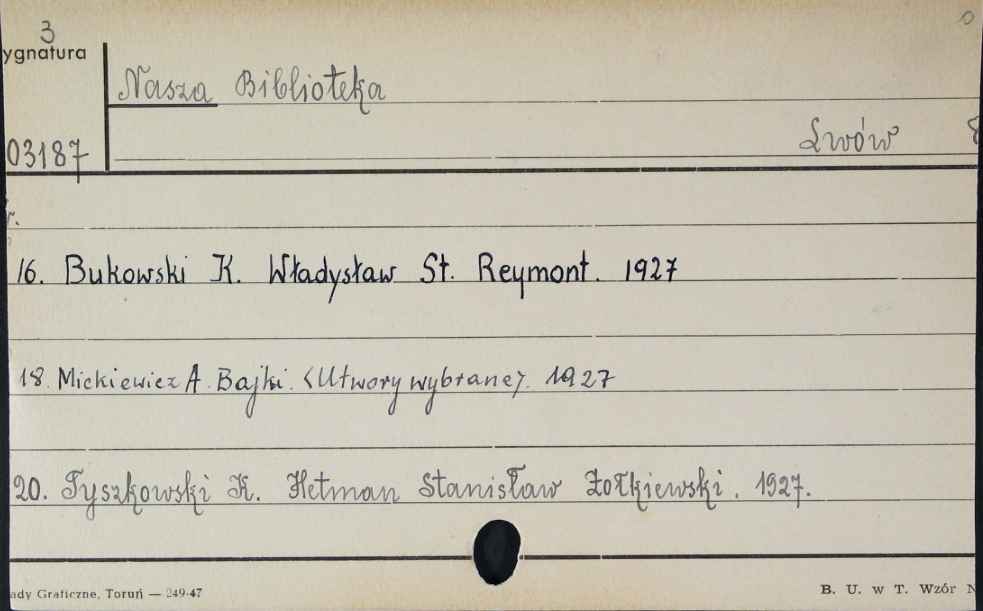 3
ygnatura
Nasza Biblioteka
Lwów 8
03187
16. Bukowski K. Władysław St. Reymont. 1927
18. Mickiewicz A. Bajki. <Utwory wybrane>. 1927
20. Tyszkowski K. Hetman Stanisław Żołkiewski. 1927.
ady Graficzne, Toruń — 249-47
B. U. w T. Wzór N